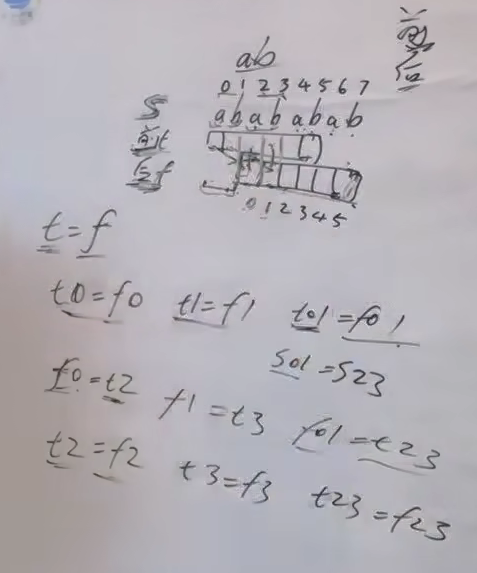 ab
0 1 2 3 4 5 6 7
S a b a b a b a b
前t
后f
0 1 2 3 4 5
t=f
t0=f0 t1=f1 t01=f01
S01=S23
f0=t2 f1=t3 f01=t23
t2=f2 t3=f3 t23=f23